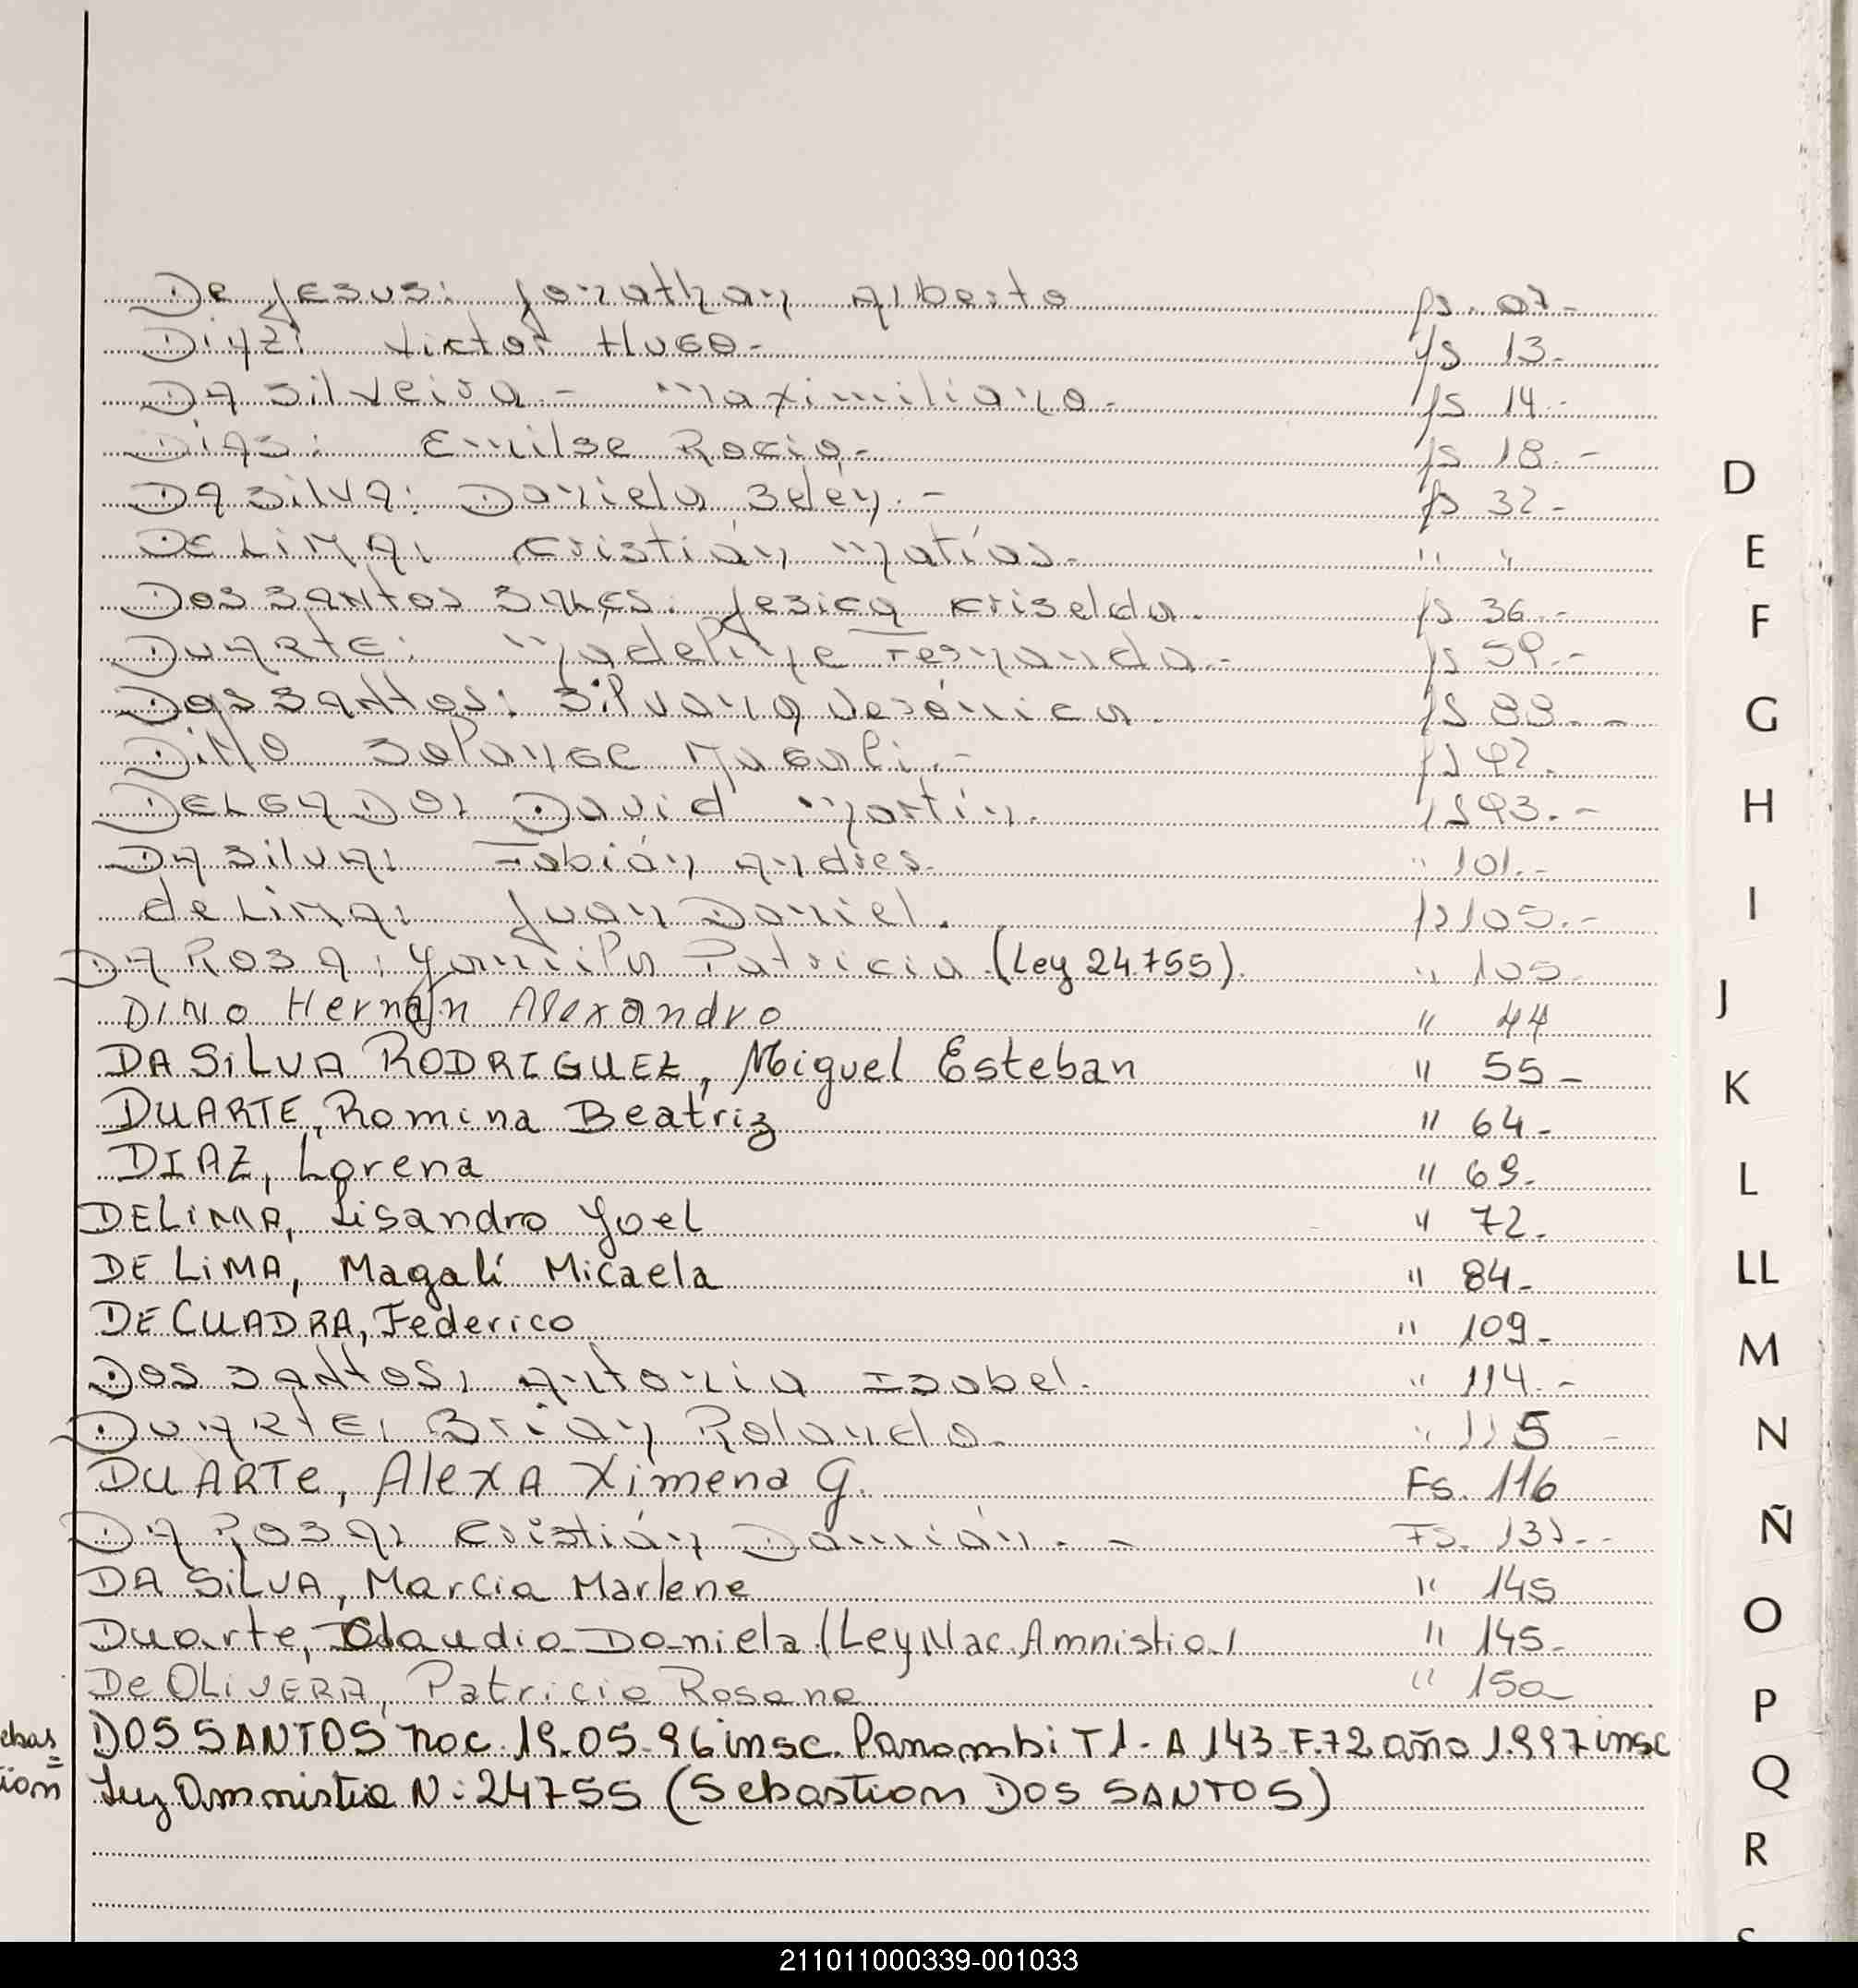 De Jesus: Jonathan Alberto fs. 07-
Diaz: Victor Hugo.- fs 13.-
Da Silveira - Maximiliano. fs 14.-
Dias: Emilse Rocio.- fs 18.-
Da Silva: Daniela Belén.- fs 32.-
De Lima: Cristián Matías.- " "
Dos Santos : Jesica Criselda. fs 36.-
Duarte: Madeline Fernanda.- fs 59.-
Dos Santos: Silvana Verónica. fs 88.-
Dino Solange Magali.- fs 92.
Delgado: David Martín. fs 93.-
Da Silva: Fabián Andres. " 101.-
de Lima: Juan Daniel. fs 105.-
Da Rosa: Yamila Patricia (Ley 24755). " 105.
DINO Hernán Alexandro " 44
DA SILVA RODRIGUEZ, Miguel Esteban " 55-
DUARTE, Romina Beatriz " 64-
DIAZ, Lorena " 69-
DELIMA, Lisandro Yoel " 72-
DE LIMA, Magalí Micaela " 84-
DE CUADRA, Federico " 109-
Dos Santos: Antonia Isabel. " 114.-
Duarte: Brian Rolando. " 115
DUARTE, Alexa Ximena G. Fs. 116
Da Rosa: Cristián Damián.- Fs. 131.-
DA SILVA, Marcia Marlene " 145
Duarte, Claudia Daniela (Ley Nac. Amnistia) " 145-
De OLIVERA, Patricia Rosana " 150
ebas DOS SANTOS nac. 19-05-96 insc. Panambi T1- A 143 F.72 año 1.997 insc
ion Ley Amnistia N: 24755 (Sebastian DOS SANTOS)
D
E
F
G
H
I
J
K
L
LL
M
N
Ñ
O
P
Q
R
S
211011000339-001033